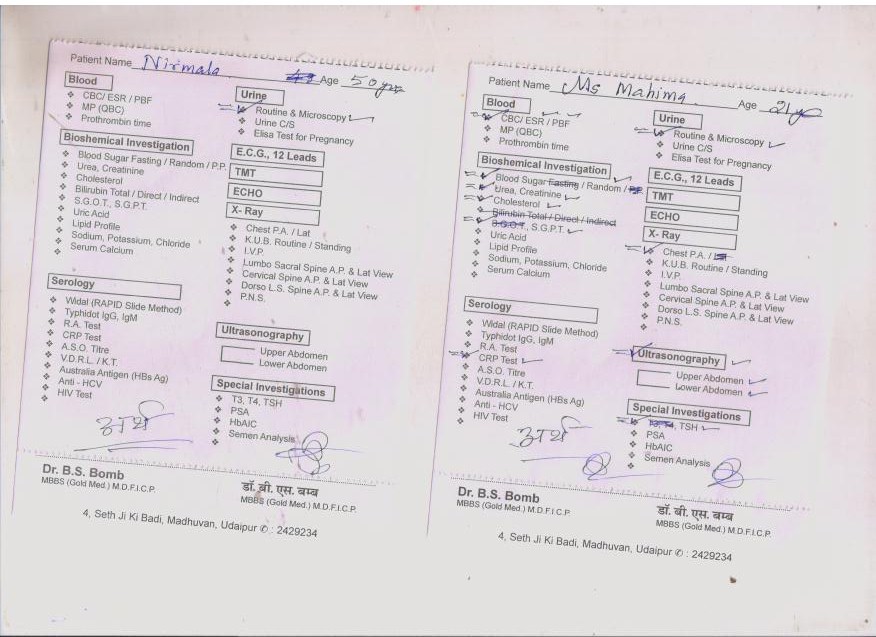 Patient Name Nirmala Age 50 yrs
Blood
CBC/ ESR / PBF
MP (QBC)
Prothrombin time
Bioshemical Investigation
Blood Sugar Fasting / Random / P.P.
Urea, Creatinine
Cholesterol
Bilirubin Total / Direct / Indirect
S.G.O.T., S.G.P.T.
Uric Acid
Lipid Profile
Sodium, Potassium, Chloride
Serum Calcium
Serology
Widal (RAPID Slide Method)
Typhidot IgG, IgM
R.A. Test
CRP Test
A.S.O. Titre
V.D.R.L. / K.T.
Australia Antigen (HBs Ag)
Anti - HCV
HIV Test
Urine
Routine & Microscopy
Urine C/S
Elisa Test for Pregnancy
E.C.G., 12 Leads
TMT
ECHO
X- Ray
Chest P.A. / Lat
K.U.B. Routine / Standing
I.V.P.
Lumbo Sacral Spine A.P. & Lat View
Cervical Spine A.P. & Lat View
Dorso L.S. Spine A.P. & Lat View
P.N.S.
Ultrasonography
Upper Abdomen
Lower Abdomen
Special Investigations
T3, T4, TSH
PSA
HbAIC
Semen Analysis
Dr. B.S. Bomb
MBBS (Gold Med.) M.D.F.I.C.P.
डॉ. बी. एस. बम्ब
MBBS (Gold Med.) M.D.F.I.C.P.
4, Seth Ji Ki Badi, Madhuvan, Udaipur ✆ : 2429234
Patient Name Ms Mahima Age 21 yr
Blood
CBC/ ESR / PBF
MP (QBC)
Prothrombin time
Bioshemical Investigation
Blood Sugar Fasting / Random / P.P.
Urea, Creatinine
Cholesterol
Bilirubin Total / Direct / Indirect
S.G.O.T., S.G.P.T.
Uric Acid
Lipid Profile
Sodium, Potassium, Chloride
Serum Calcium
Serology
Widal (RAPID Slide Method)
Typhidot IgG, IgM
R.A. Test
CRP Test
A.S.O. Titre
V.D.R.L. / K.T.
Australia Antigen (HBs Ag)
Anti - HCV
HIV Test
Urine
Routine & Microscopy
Urine C/S
Elisa Test for Pregnancy
E.C.G., 12 Leads
TMT
ECHO
X- Ray
Chest P.A. / Lat
K.U.B. Routine / Standing
I.V.P.
Lumbo Sacral Spine A.P. & Lat View
Cervical Spine A.P. & Lat View
Dorso L.S. Spine A.P. & Lat View
P.N.S.
Ultrasonography
Upper Abdomen
Lower Abdomen
Special Investigations
T3, T4, TSH
PSA
HbAIC
Semen Analysis
Dr. B.S. Bomb
MBBS (Gold Med.) M.D.F.I.C.P.
डॉ. बी. एस. बम्ब
MBBS (Gold Med.) M.D.F.I.C.P.
4, Seth Ji Ki Badi, Madhuvan, Udaipur ✆ : 2429234